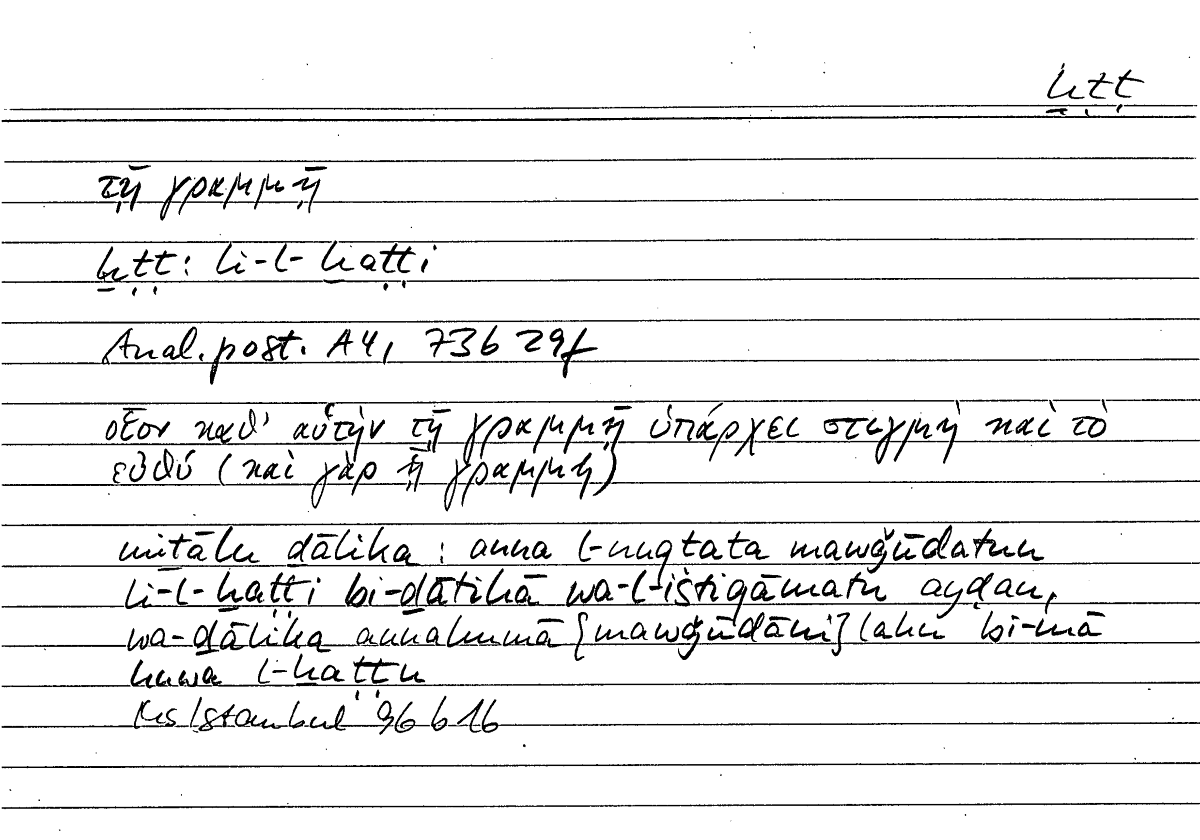 ḫṭṭ
τῇ γραμμῇ
ḫṭṭ: li-l-ḫaṭṭi
Anal. post. A4, 73b 29f
οἷον καθ' αὑτὴν τῇ γραμμῇ ὑπάρχει στιγμὴ καὶ τὸ
εὐθύ (καὶ γὰρ ᾗ γραμμή)
miṯālu ḏālika : anna l-nuqṭata mawǧūdatun
li-l-ḫaṭṭi bi-ḏātihā wa-l-ištiqāmatu ayḍan,
wa-ḏālika annahumā [mawǧūdāni] lahu bi-mā
huwa l-ḫaṭṭu
Ms Istanbul 96b16